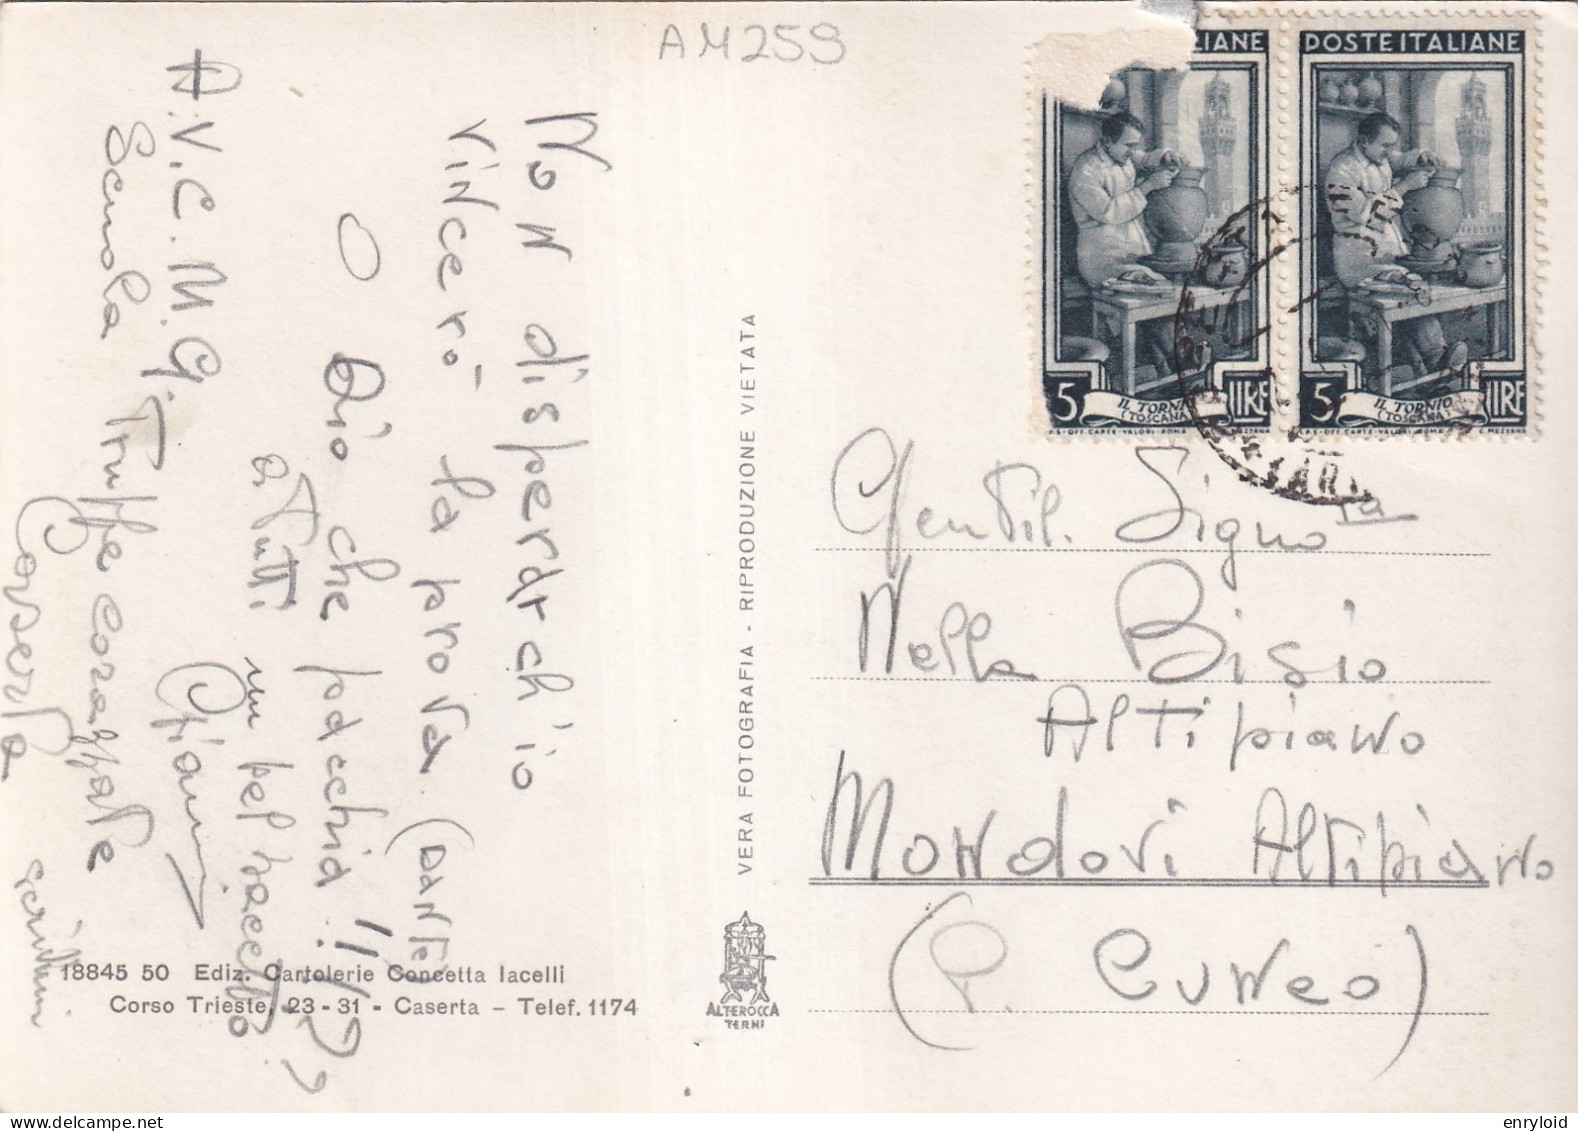 AM259
Non disperdt ch'io
vincerò la prova (DANTE)
O Dio che pacchia!!!??
a tutti un bel bacetto
Gianni
A.V.C. M. G.
Scuola Truppe Corazzate
Caserta
scrittemi
18845 50 Ediz. Cartolerie Concetta Iacelli
Corso Trieste, 23-31 - Caserta – Telef. 1174
VERA FOTOGRAFIA - RIPRODUZIONE VIETATA
ALTEROCCA
TERNI
LIANE
POSTE ITALIANE
5 LIRE
IL TORNIO
(TOSCANA)
5 LIRE
IL TORNIO
(TOSCANA)
Gentil. Signora
Nella Bisio
Altipiano
Mondovi Altipiano
(P. Cuneo)
enryloid